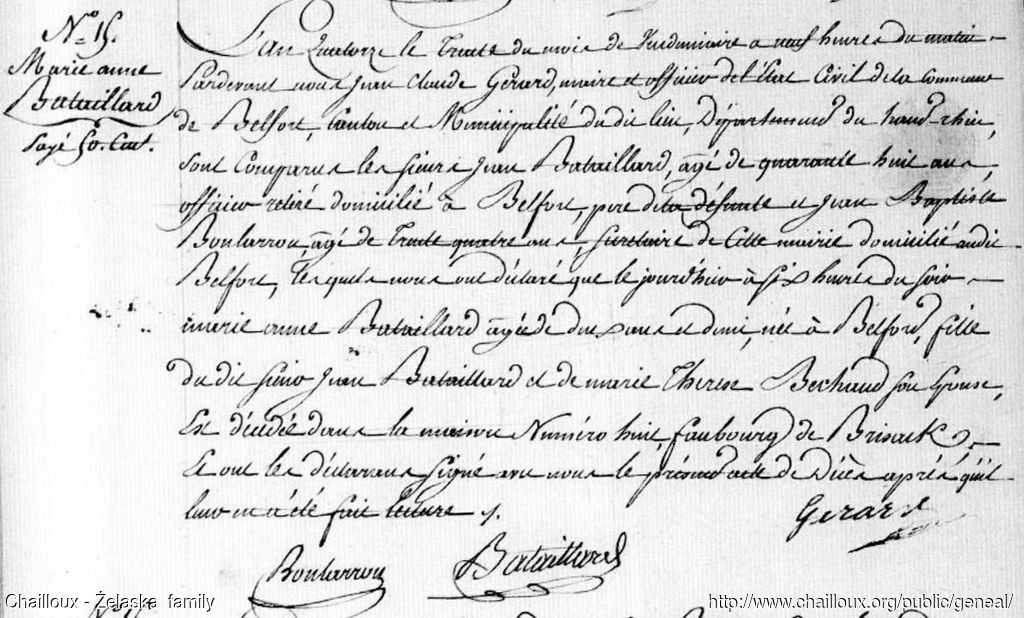 N.o 15.
Marie anne
Bataillard
âgé 50. Cent.
L'an Quatorze le Trente du mois de Vendemiaire a neuf heures du matin
Pardevant nous Jean Claude Gérard, maire et officier de l'État Civil de la Commune
de Belfort, Canton et Municipalité du dit lieu, Département du haut-rhin,
sont Comparus les sieurs Jean Bataillard, agé de quarante huit ans,
officier retiré domicilié à Belfort, pere de la défunte et Jean Baptiste
Boularrou agé de Trente quatre ans, secretaire de Cette mairie domicilié audit
Belfort, lesquels nous ont déclaré que le jourd'hier à six heures du soir
marie anne Bataillard agée de deux ans et demi, née à Belfort, fille
du dit sieur Jean Bataillard et de marie Therese Bechaud son Epouse,
Est décédée dans la maison Numéro huit, faubourg de Brisack.
Et ont les déclarans signé avec nous le présent acte de Décès après qu'il
leur en a été fait lecture ./.
Gerard
Boularrou Bataillard
Chailloux - Żelaska family
http://www.chailloux.org/public/geneal/